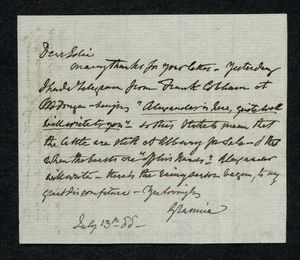 Dear Sir
many thanks for your letter – Yesterday
I had a telegram from Frank Cobham at
saying "Alexander is here, quite well
will write to you" – so this I take to mean that
the cattle are still at Albury for sale – & that
when the beasts are "off his hands" Alexander
will write – Here's the rainy season begun, to my
great discomfort – Yrs lovingly
July 13th 88 –